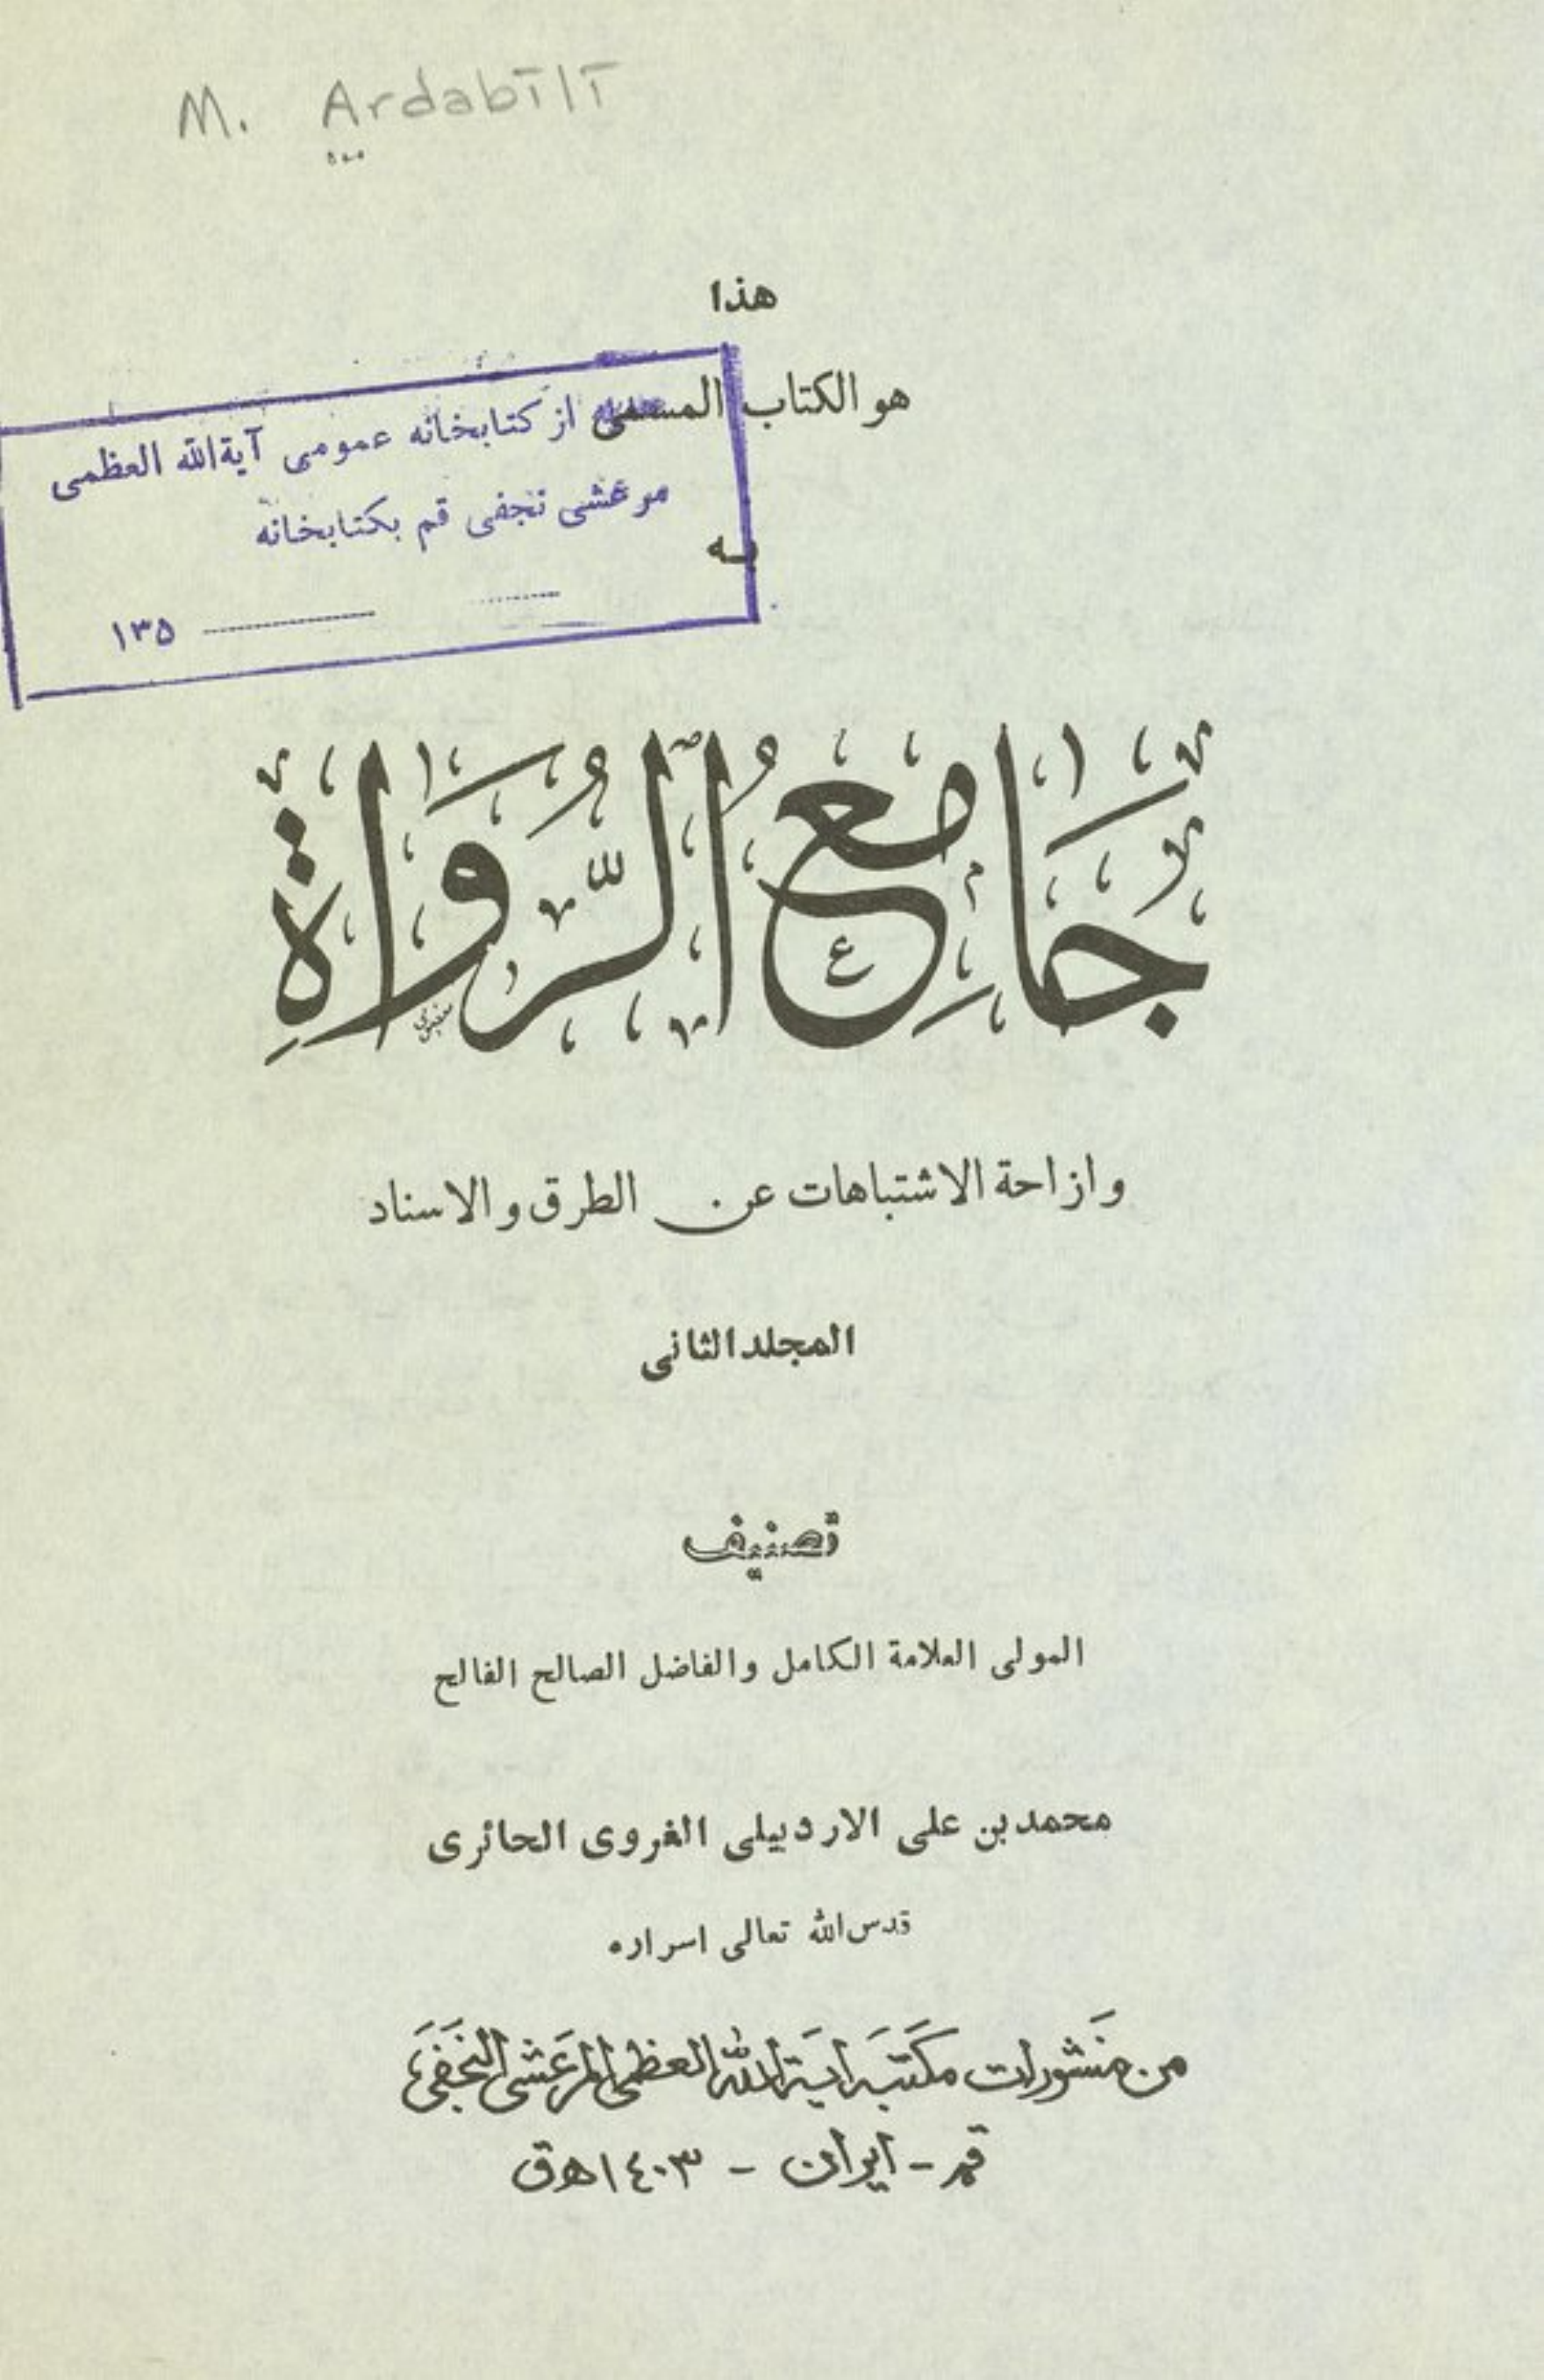 M. Ardabīlī
هذا
هو الكتاب المسمى
به
از كتابخانه عمومى آية الله العظمى
مرعشى نجفى قم بكتابخانه
۱۳۵
جَامِعُ الرُّوَاةِ
وازاحة الاشتباهات عن الطرق والاسناد
المجلد الثانى
تصنيف
المولى العلامة الكامل والفاضل الصالح الفالح
محمد بن على الاردبيلى الغروى الحائرى
قدس الله تعالى اسراره
من منشورات مكتبة اية الله العظمى المرعشى النجفى
قم - ايران - ١٤٠٣ هـ ق